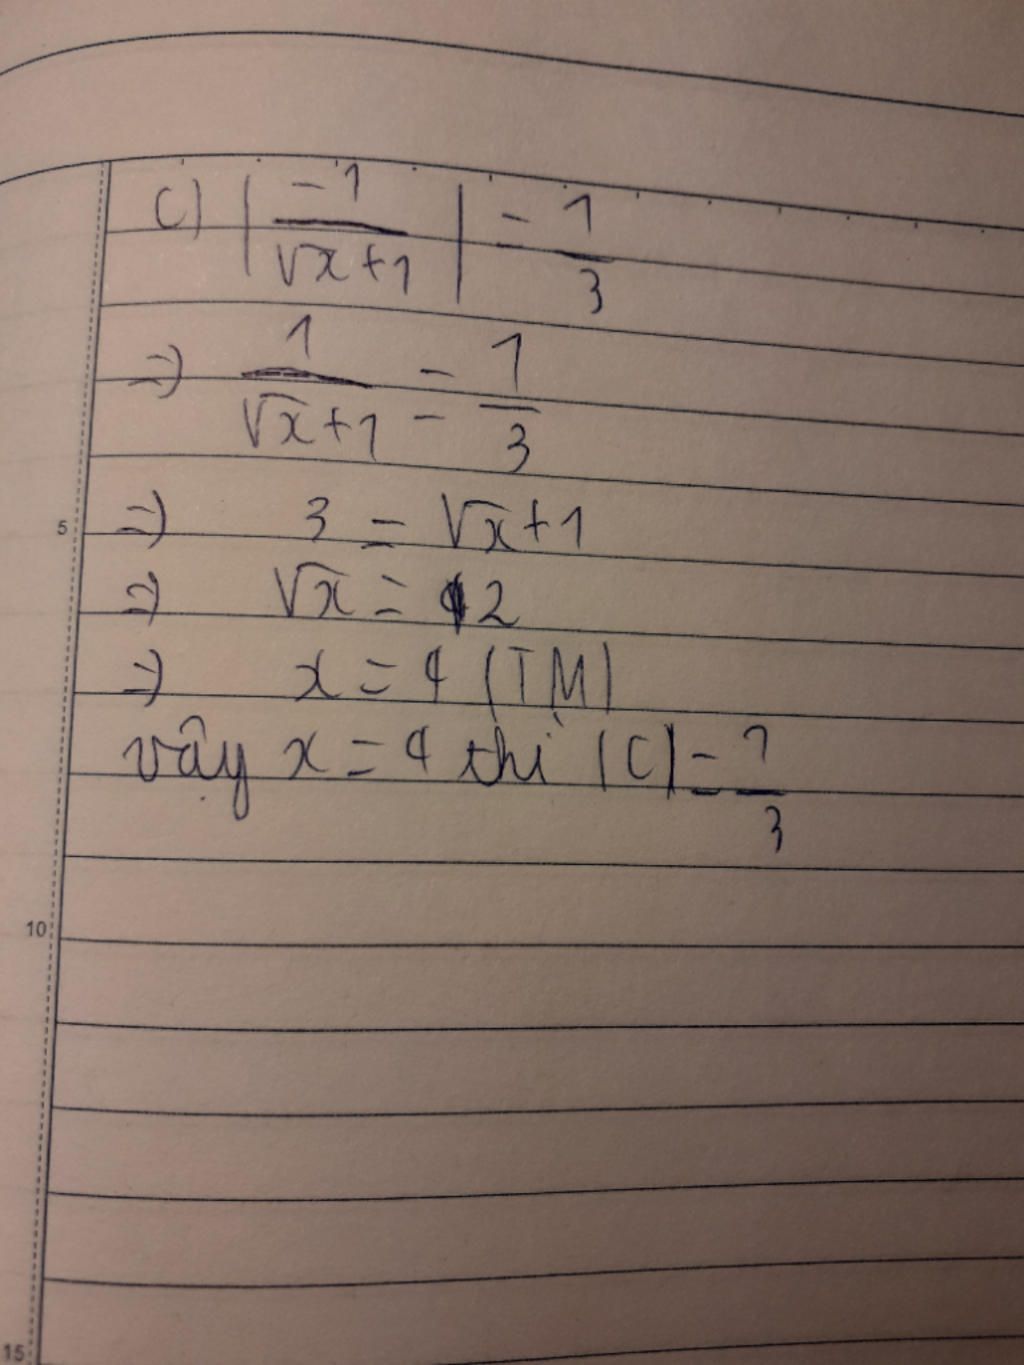 c) | -1 / √x+1 | = 1/3
=) 1 / √x+1 = 1/3
5 =) 3 = √x+1
=) √x = 2
=) x = 4 (TM)
vậy x = 4 thì |C| = 1/3
10
15